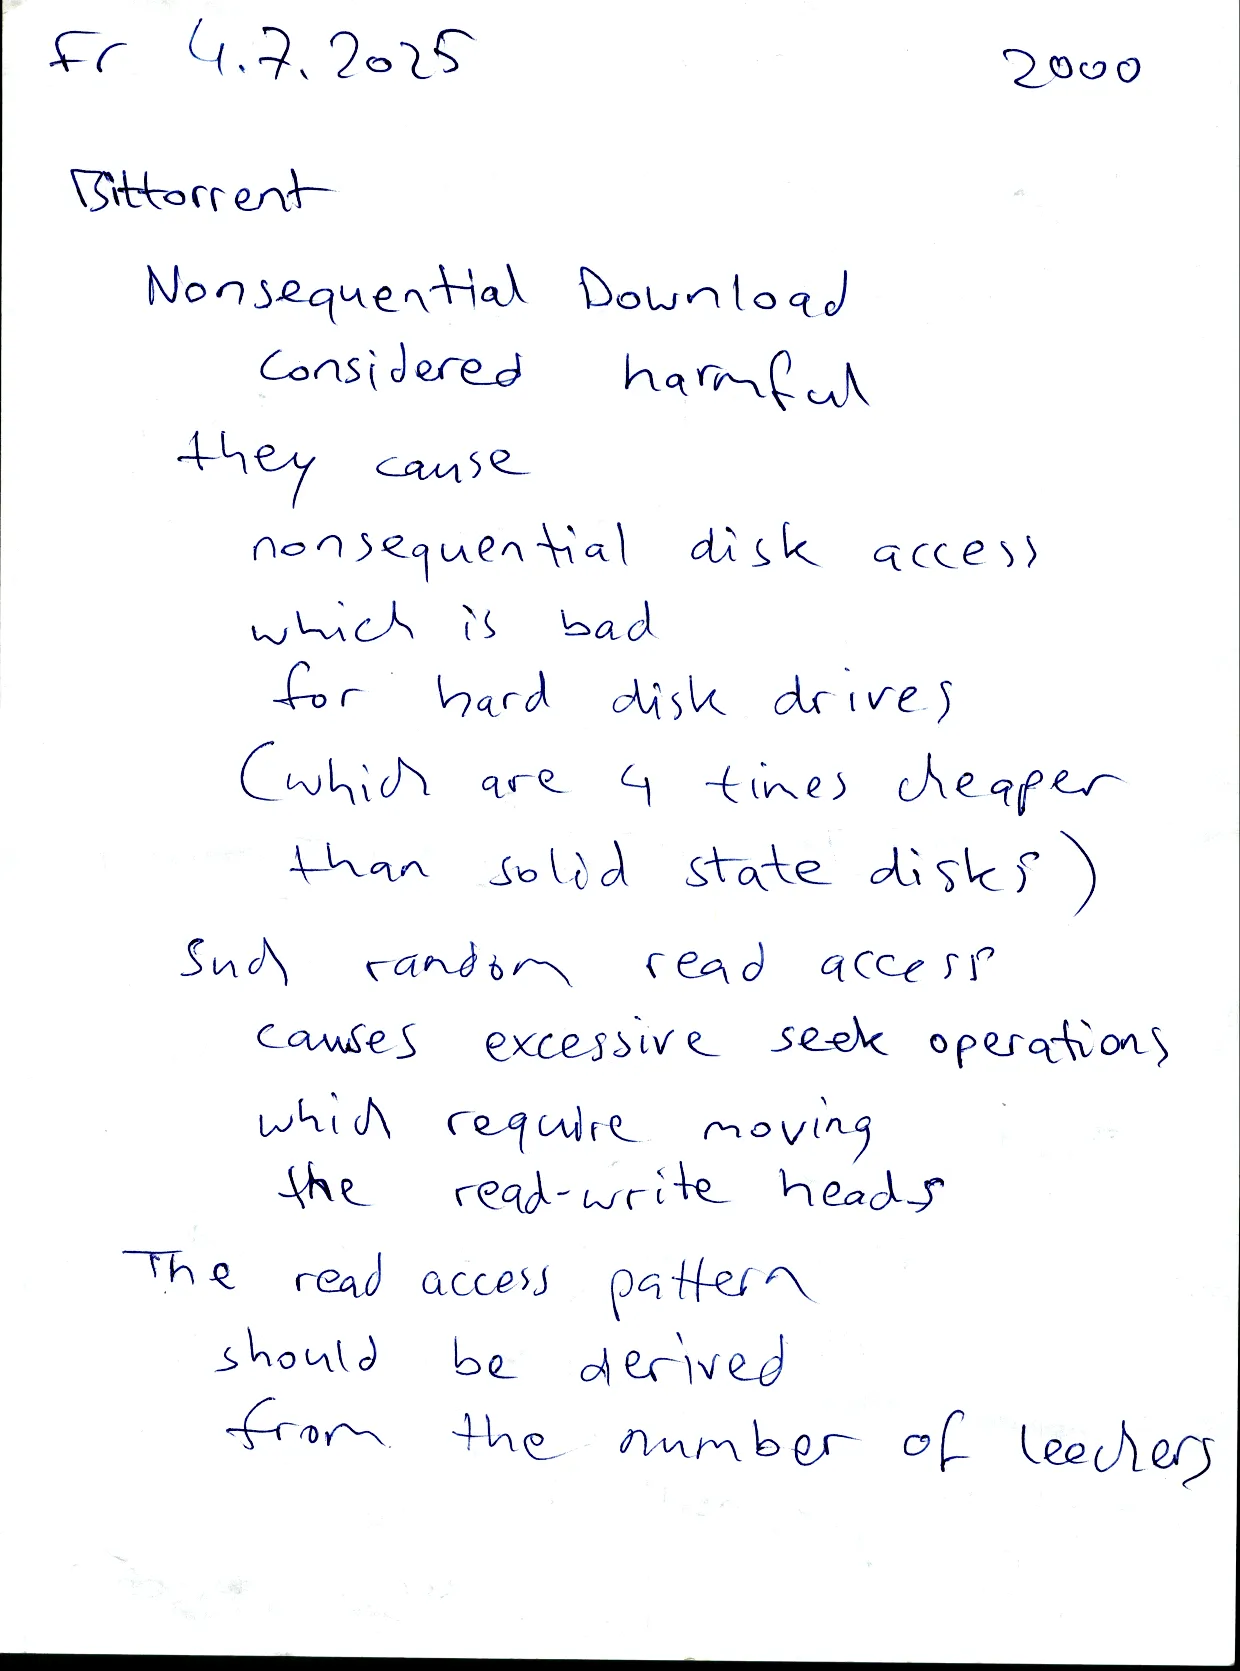 Fr 4.7.2025 2000
Bittorrent
Nonsequential Download
considered harmful
they cause
nonsequential disk access
which is bad
for hard disk drives
(which are 4 times cheaper
than solid state disks)
Such random read access
causes excessive seek operations
which require moving
the read-write heads
The read access pattern
should be derived
from the number of leechers